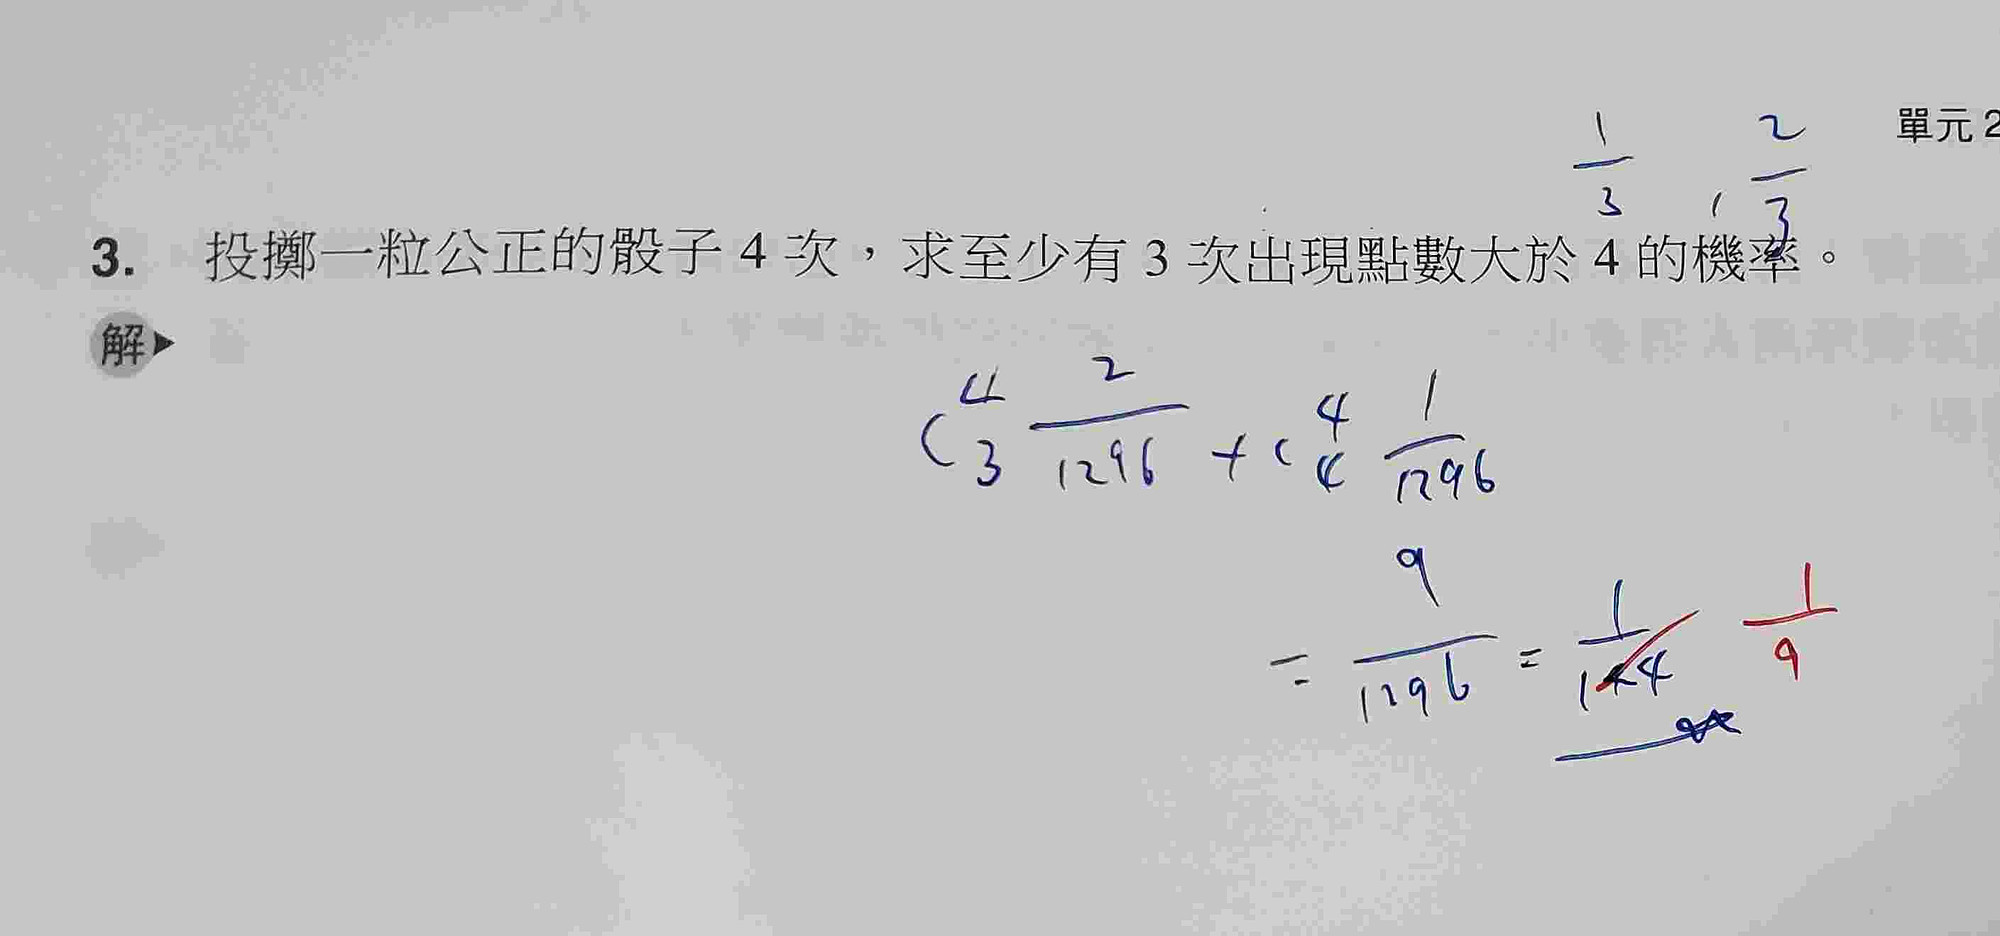 1/3 , 2/3
單元 2
3. 投擲一粒公正的骰子 4 次，求至少有 3 次出現點數大於 4 的機率。
解
C 4 3 2/1296 + C 4 4 1/1296
= 9/1296 = 1/144 1/9